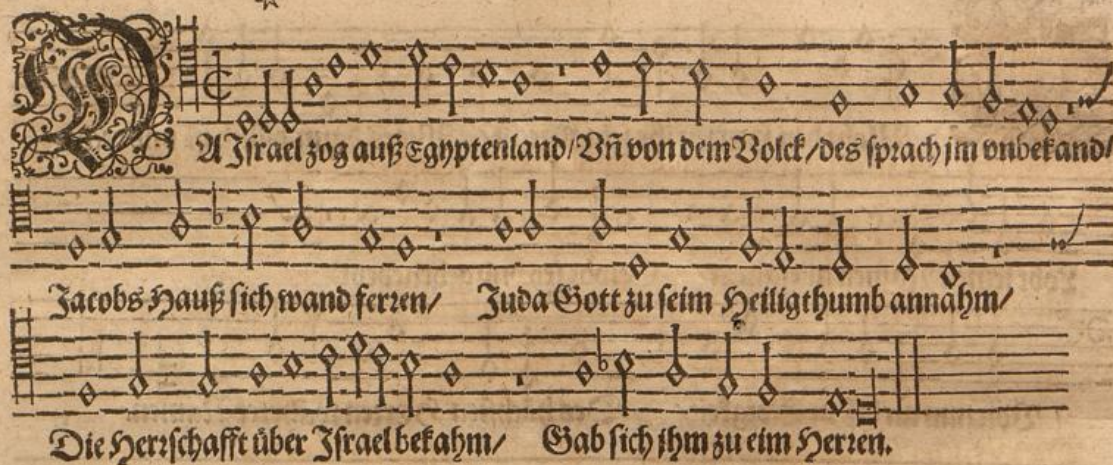 DA Jſrael zog auß Egyptenland/Vñ von dem Volck/des ſprach jm vnbekand/
Jacobs Hauß ſich wand ferren/ Juda Gott zu ſeim Heiligthumb annahm/
Die Herrſchafft über Jſrael bekahm/ Gab ſich jhm zu eim Herren.